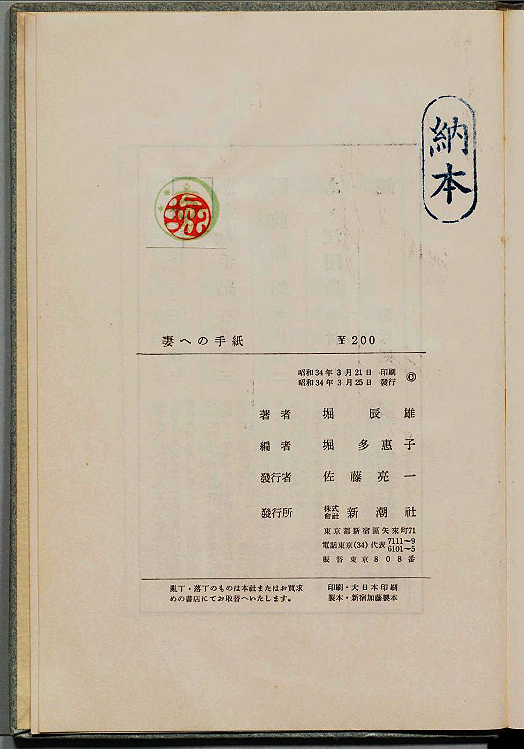 納本
堀
妻への手紙 ¥200
昭和34年3月21日 印刷
昭和34年3月25日 發行
©
著者 堀辰雄
編者 堀多惠子
發行者 佐藤亮一
發行所 株式會社 新潮社
東京都新宿區矢來町71
電話東京(34)代表 7111~9
6101~5
振替東京808番
亂丁・落丁のものは本社またはお買求
めの書店にてお取替へいたします。
印刷・大日本印刷
製本・新宿加藤製本